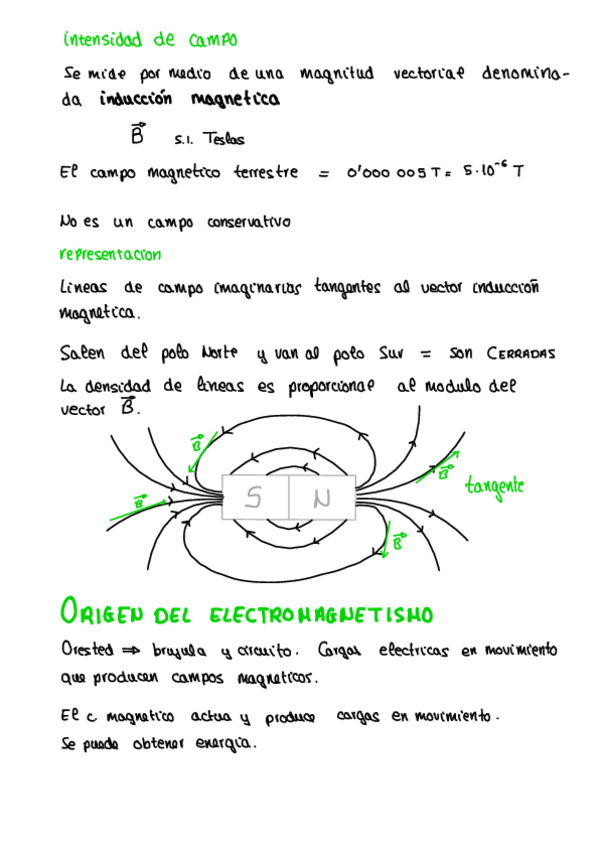 intensidad de campo
Se mide por medio de una magnitud vectorial denomina-
da inducción magnetica
B⃗ S.I. Teslas
El campo magnetico terrestre = 0'000 005 T = 5·10⁻⁶ T
No es un campo conservativo
representacion
Lineas de campo imaginarias tangentes al vector inducción
magnetica.
Salen del polo Norte y van al polo Sur = son CERRADAS
La densidad de lineas es proporcional al modulo del
vector B⃗.
B⃗
B⃗
tangente
B⃗
S N
B⃗
ORIGEN DEL ELECTROMAGNETISMO
Orested ⇒ brujula y circuito. Cargas electricas en movimiento
que producen campos magneticos.
El c magnetico actua y produce cargas en movimiento.
Se puede obtener energia.